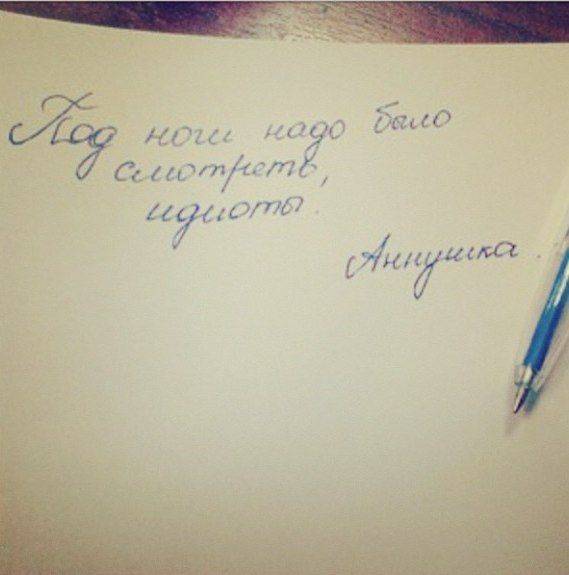 Под ноги надо было
смотреть,
идиоты.
Аннушка.